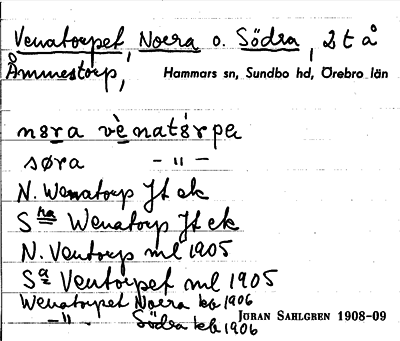 Venatorpet, Norra o. Södra, 2 t å
Åmmestorp, Hammars sn, Sundbo hd, Örebro län
nora vènatórpa
søra - " -
N. Wenatorp Jt ek
S ra Wenatorp Jt ek
N. Ventorp ml 1905
Sa Ventorpet ml 1905
Wenatorpet Norra kb 1906
- " - Södra kb 1906
JÖRAN SAHLGREN 1908-09